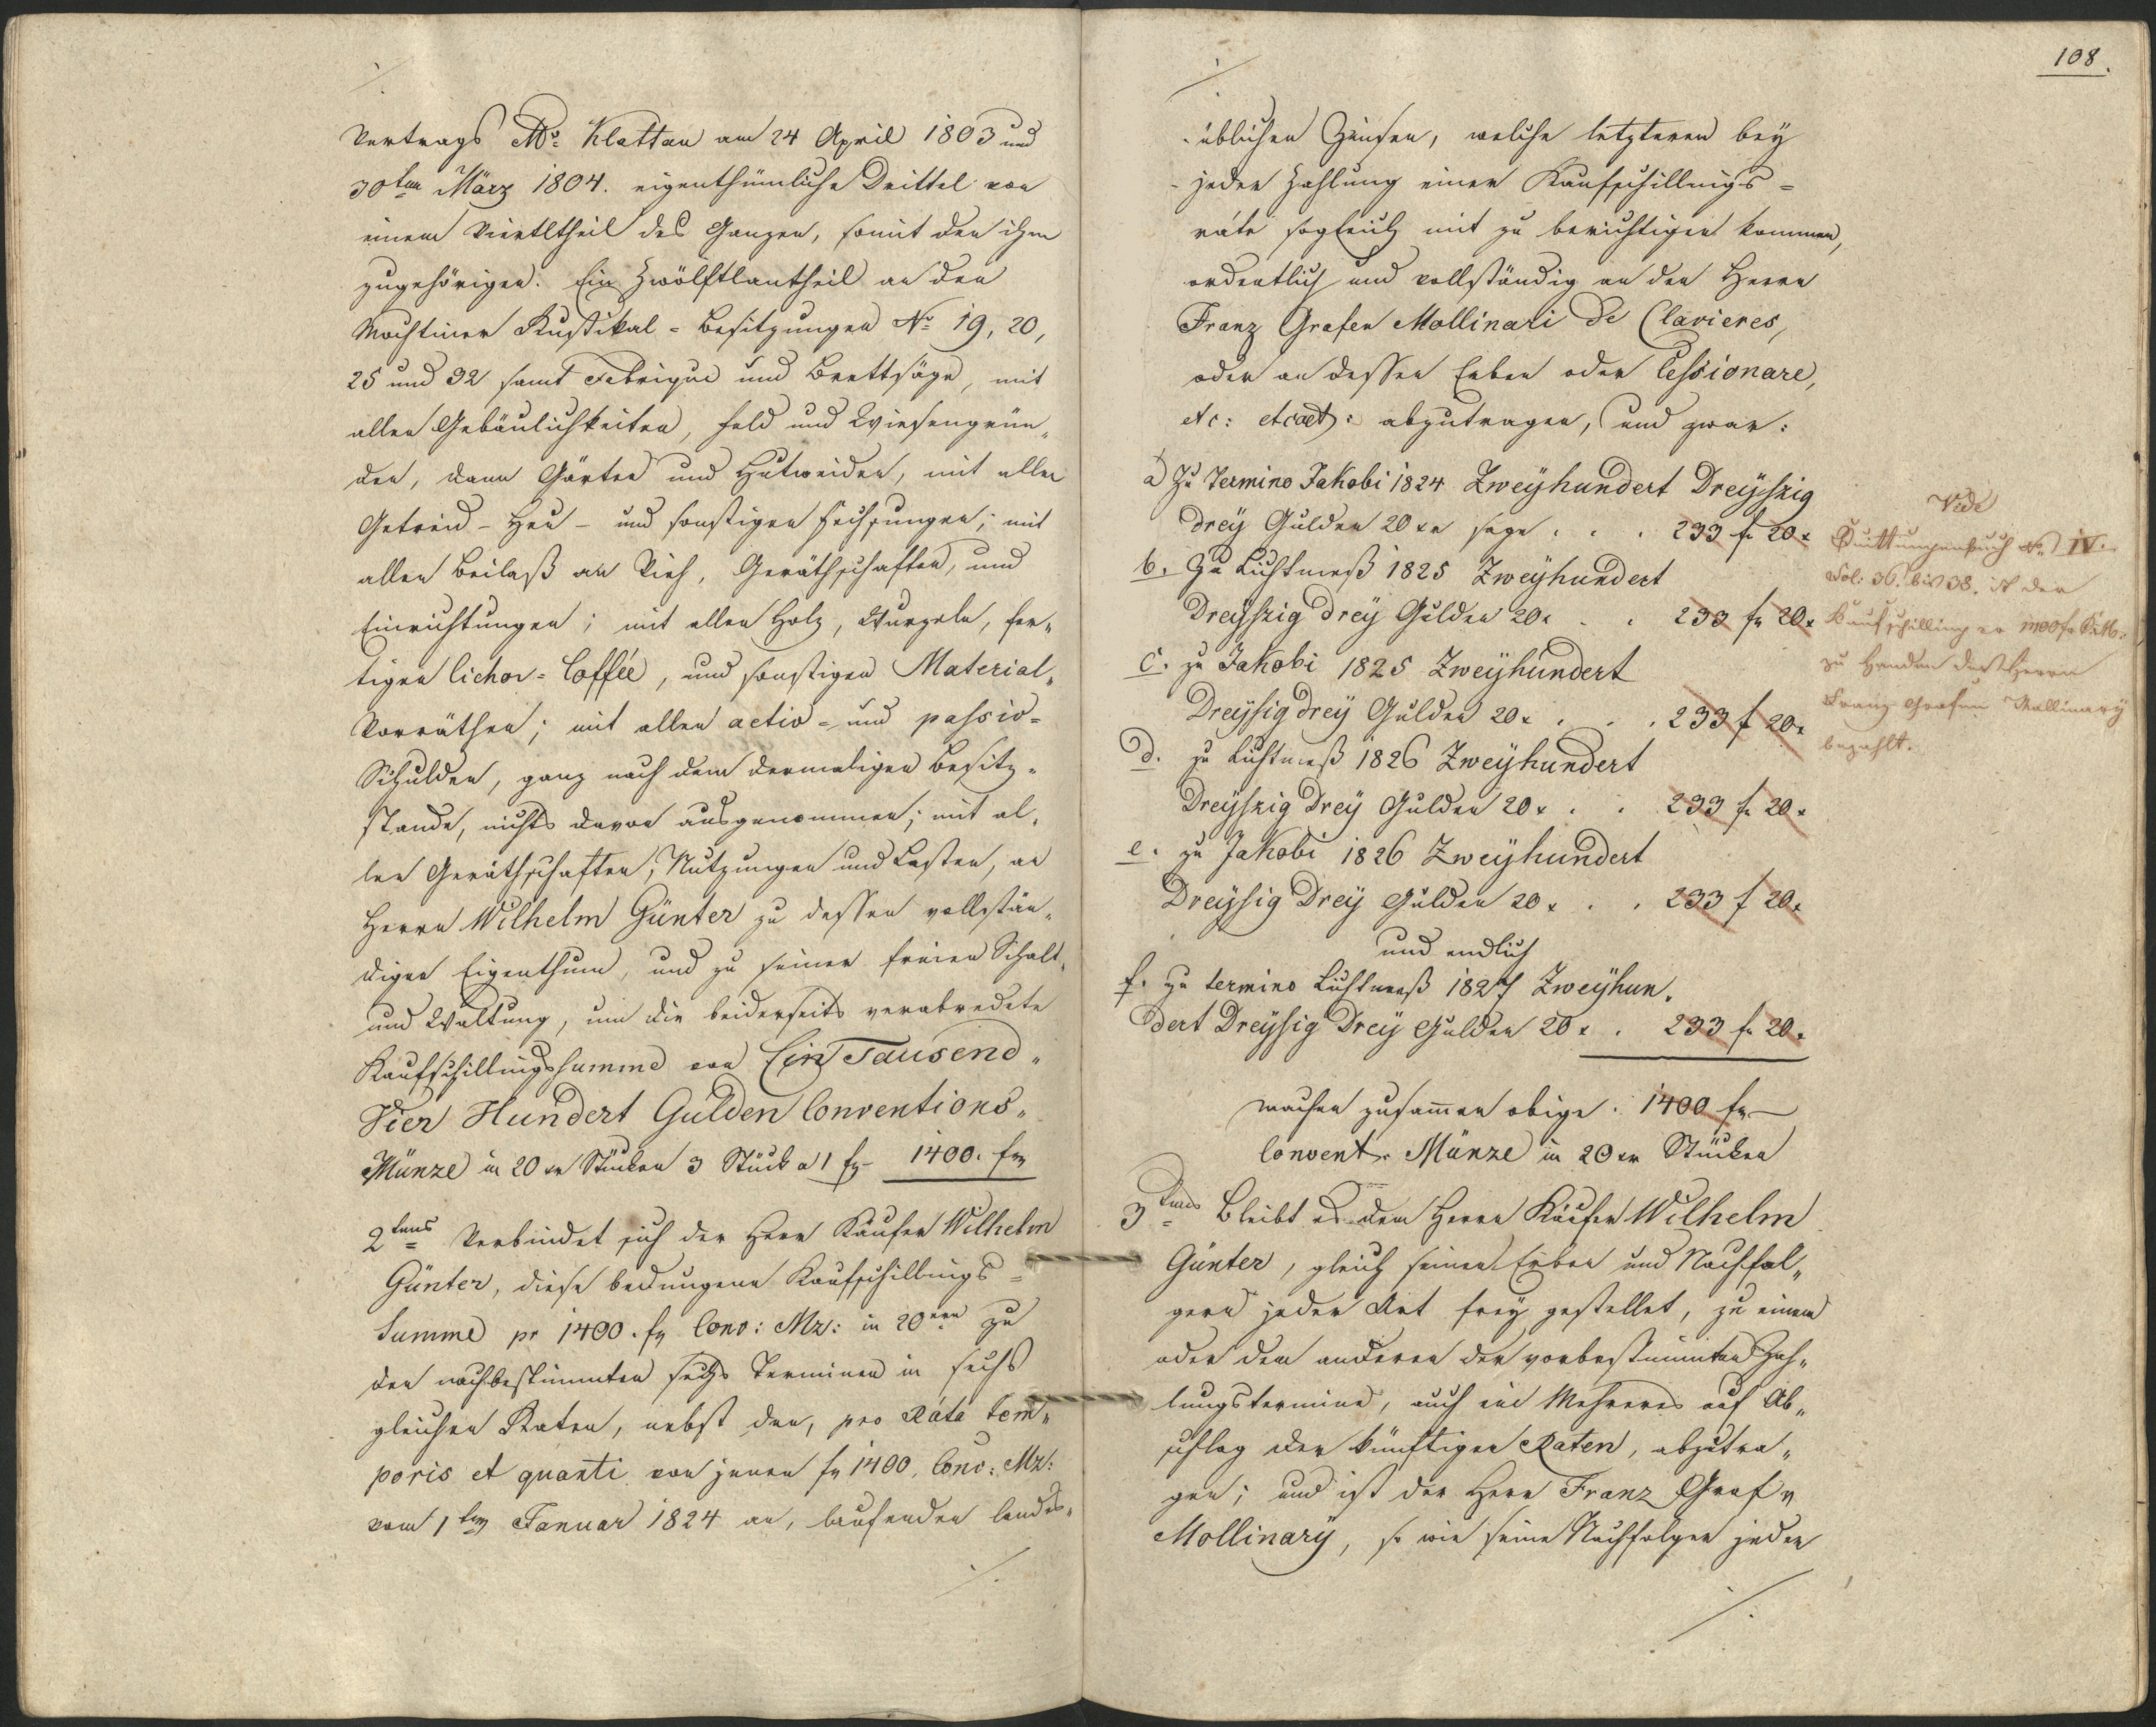 Vertrags No: Klattau am 24 April 1803 und
30ten März 1804. eigenthümliche Drittel von
einem Viertltheil des Ganzen, somit den ihm
zugehörigen: Ein Zwölftlantheil an den
Wochtiner Rustikal = Besitzungen No 19, 20,
25 und 32 samt Fabrique und Brettsäge, mit
allen Gebäulichkeiten, Feld und Wiesengrün„
den, dann Gärten und Hutweiden, mit allen
Getreid - Heu - und sonstigen Fechsungen; mit
allen Beilaß an Vieh, Geräthschaften, und
Einrichtungen; mit allen Holz, Wurzeln, fer„
tigen Cichor = Coffée, und sonstigen Material„
Vorräthen; mit allen activ = und passiv =
Schulden, ganz nach dem dermaligen Besitz„
stande, nichts davon ausgenommen; mit al„
len Geräthschaften, Nutzungen und Lasten, an
Herrn Wilhelm Günter zu dessen vollstän„
digen Eigenthum, und zu seiner freien Schalt„
und Waltung, um die beiderseits verabredete
Kaufschillingssumme von Ein Tausend„
Vier Hundert Gulden Conventions„
Münze in 20 xr Stücken 3 Stück a 1 fr 1400. fr
2tens Verbindet sich der Herr Käufer Wilhelm
Günter, diese bedungene Kaufschillings =
Summe pr 1400. fr Conv: Mz: in 20ern zu
den nachbestimmten sechs Terminen in sechs
gleichen Raten, nebst den, pro Ráta tem„
poris et quanti von jenen fr 1400. Conv: Mz:
vom 1ten Januar 1824 an, laufenden landes„
108.
üblichen Zinsen, welche letzteren bey
jeder Zahlung einer Kaufschillings =
ráte sogleich mit zu berichtigen kommen,
ordentlich und vollständig an den Herrn
Franz Grafen Mollinari de Clavieres,
oder an dessen Erben oder Cessionare,
etc: etcaet: abzutragen, und zwar:
a) Zu Termino Jakobi 1824 Zweyhundert Dreyszig
drey Gulden 20 xr sage . . . 233 fr 20 x
b. Zu Lichtmeß 1825 Zweyhundert
Dreyszig drey Gulden 20x . . 233 fr 20x
c. zu Jakobi 1825 Zweyhundert
Dreysig drey Gulden 20x . . . 233 f 20x
d. zu Lichtmeß 1826 Zweyhundert
Dreyszig Drey Gulden 20x . . 233 fr 20x
e. zu Jakobi 1826 Zweyhundert
Dreysig Drey Gulden 20x . . 233 f 20x
und endlich
f. zu termino Lichtmeß 1827 Zweyhun„
dert Dreysig Drey Gulden 20x . 233 fr 20x
machen zusamen obige . 1400 fr —
Convent. Münze in 20 xr Stücken
3tens Bleibt es dem Herrn Käufer Wilhelm
Günter, gleich seinen Erben und Nachfol„
gern jeder Art frey gestellet, zu einem
oder dem anderen der vorbestimmten Zah„
lungstermine, auch ein Mehreres auf Ab„
schlag der künftigen Raten, abzutra„
gen; und ist der Herr Franz Graf v
Mollinary, so wie seine Nachfolger jeder
Vide
Quittungenbuch No IV.
Fol: 36. bis 38. ist der
Kaufschilling
zu Handen des Herrn
Franz Grafen Mollinary
bezahlt.